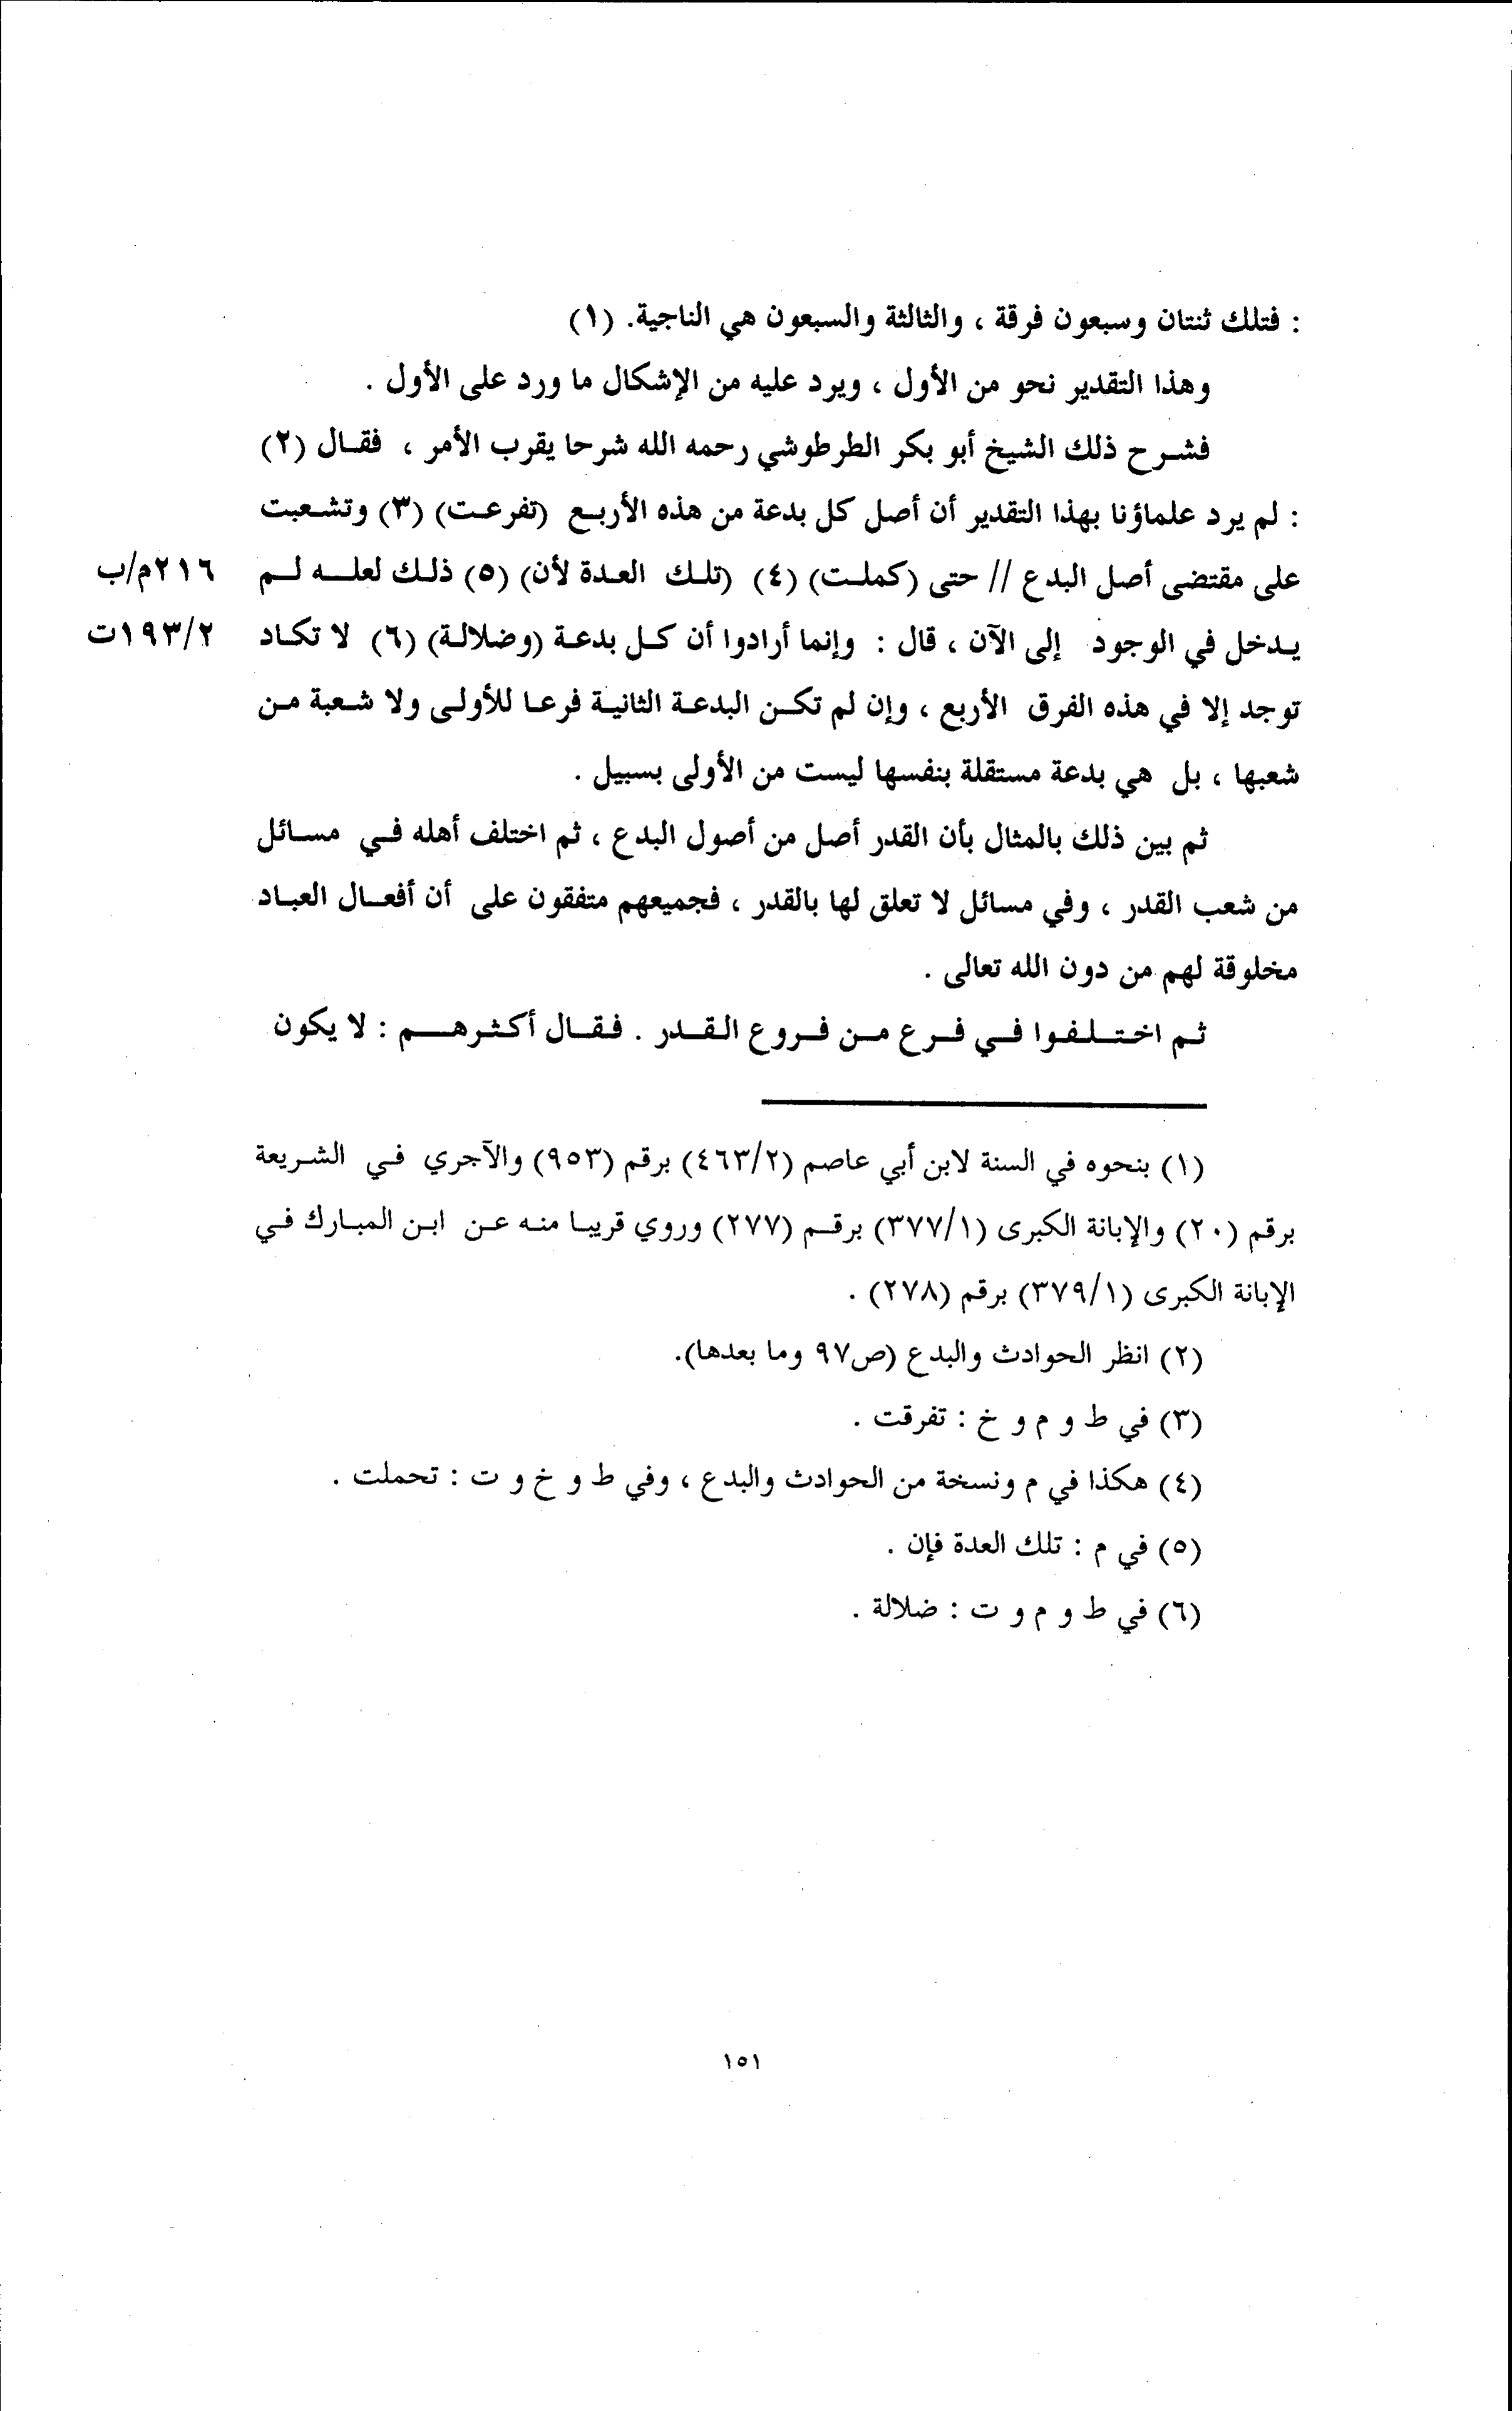 : فتلك ثنتان وسبعون فرقة ، والثالثة والسبعون هي الناجية. (١)
وهذا التقدير نحو من الأول ، ويرد عليه من الإشكال ما ورد على الأول .
فشرح ذلك الشيخ أبو بكر الطرطوشي رحمه الله شرحا يقرب الأمر ، فقال (٢)
: لم يرد علماؤنا بهذا التقدير أن أصل كل بدعة من هذه الأربع (تفرعت) (٣) وتشعبت
على مقتضى أصل البدع // حتى (كملت) (٤) (تلك العدة لأن) (٥) ذلك لعله لم ٢١٦م/ب
يدخل في الوجود إلى الآن ، قال : وإنما أرادوا أن كل بدعة (وضلالة) (٦) لا تكاد ١٩٣/٢ت
توجد إلا في هذه الفرق الأربع ، وإن لم تكن البدعة الثانية فرعا للأولى ولا شعبة من
شعبها ، بل هي بدعة مستقلة بنفسها ليست من الأولى بسبيل .
ثم بين ذلك بالمثال بأن القدر أصل من أصول البدع ، ثم اختلف أهله في مسائل
من شعب القدر ، وفي مسائل لا تعلق لها بالقدر ، فجميعهم متفقون على أن أفعال العباد
مخلوقة لهم من دون الله تعالى .
ثم اختلفوا في فرع من فروع القدر . فقال أكثرهم : لا يكون
(١) بنحوه في السنة لابن أبي عاصم (٤٦٣/٢) برقم (٩٥٣) والآجري في الشريعة
برقم (٢٠) والإبانة الكبرى (٣٧٧/١) برقم (٢٧٧) وروي قريبا منه عن ابن المبارك في
الإبانة الكبرى (٣٧٩/١) برقم (٢٧٨) .
(٢) انظر الحوادث والبدع (ص٩٧ وما بعدها).
(٣) في ط و م و خ : تفرقت .
(٤) هكذا في م ونسخة من الحوادث والبدع ، وفي ط و خ و ت : تحملت .
(٥) في م : تلك العدة فإن .
(٦) في ط و م و ت : ضلالة .
١٥١